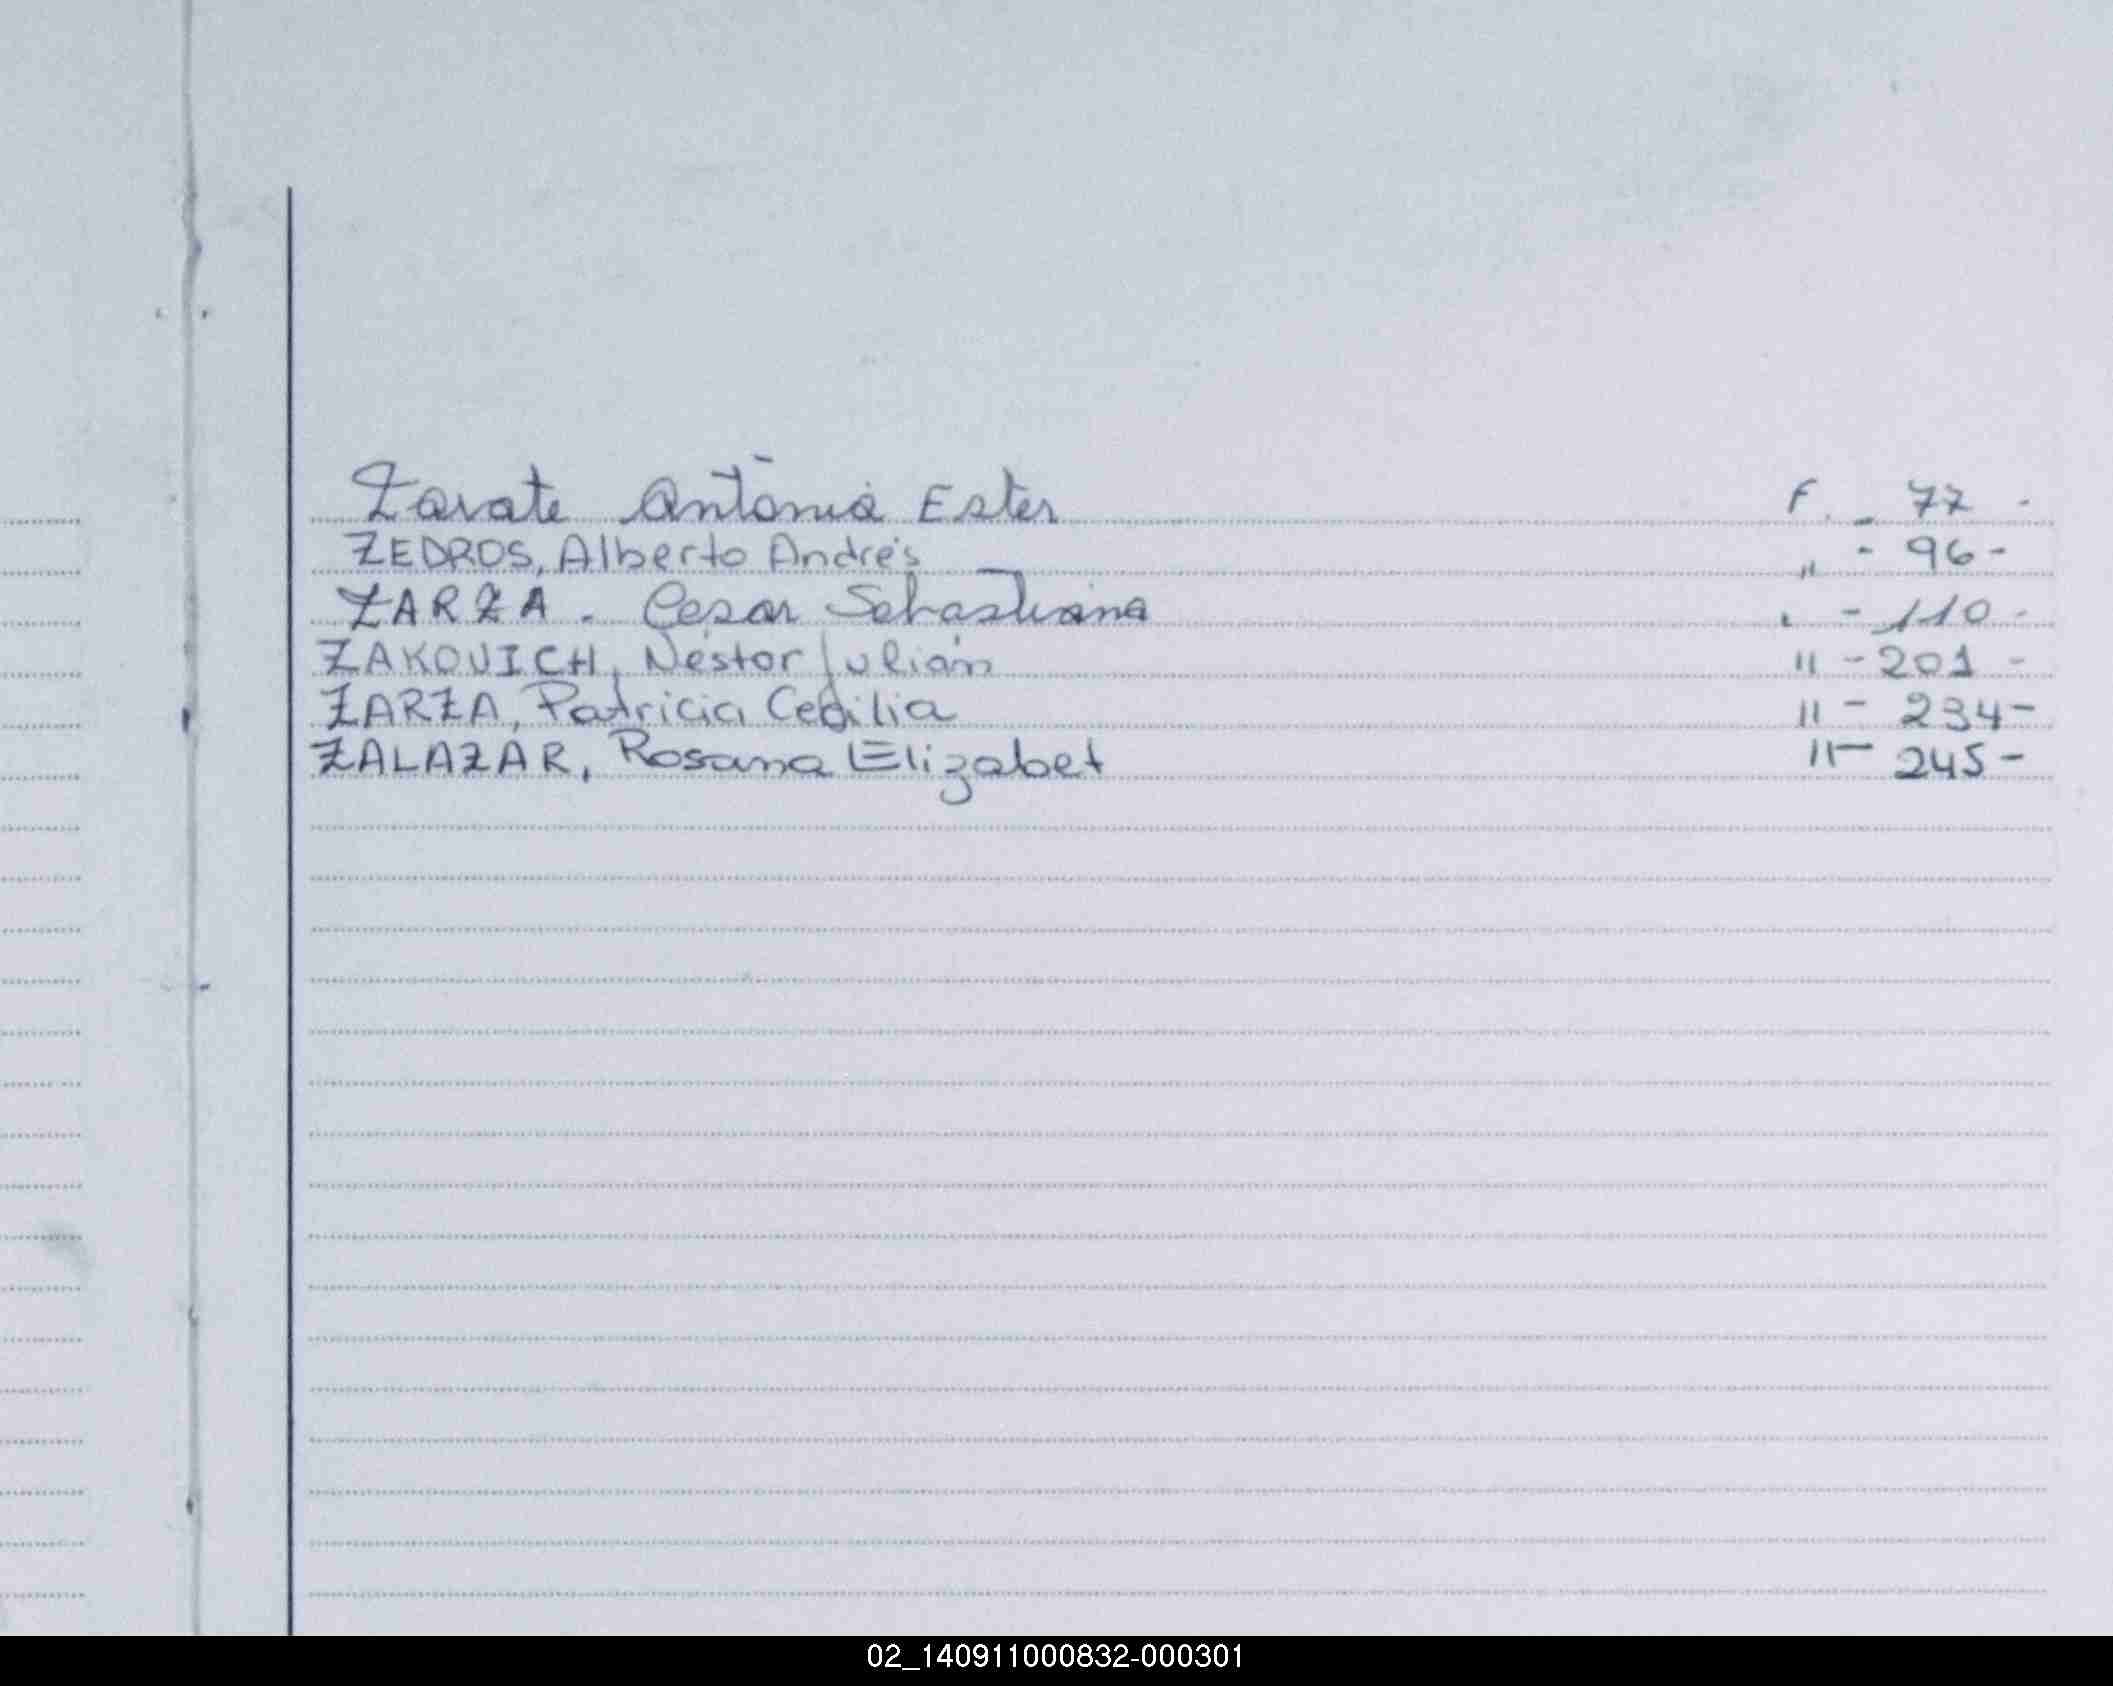 Zarate Antonia Ester F. - 77 -
ZEDROS, Alberto Andrés " - 96 -
ZARZA - Cesar Sebastiana " - 110 -
ZAKOVICH, Néstor Julián " - 201 -
ZARZA, Patricia Cecilia " - 234 -
ZALAZAR, Rosana Elizabet " - 245 -
02_140911000832-000301